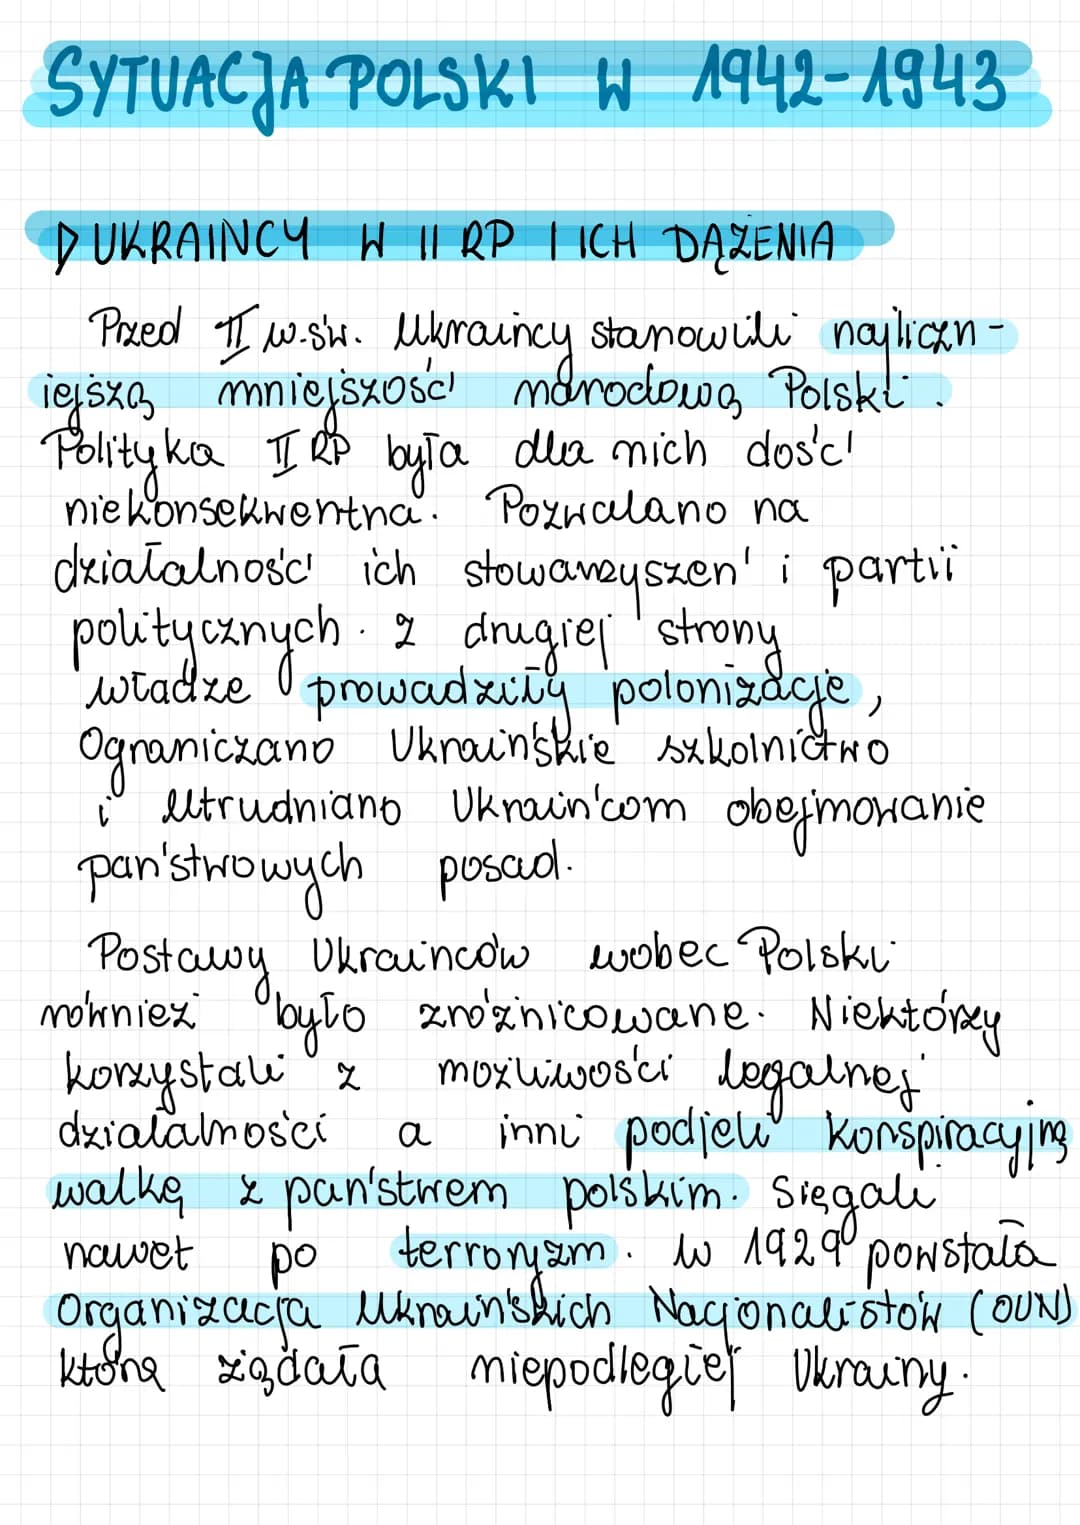 SYTUACJA POLSKI W 1942-1943
▷ UKRAINCY W II RP I ICH DĄŻENIA
Przed II w.św. Ukraińcy stanowili najliczn-
iejszą mniejszość narodową Polski.
Polityka II RP była dla nich dość
niekonsekwentna. Pozwalano na
działalność ich stowarzyszeń i partii
politycznych. Z drugiej strony
władze prowadziły polonizację,
Ograniczano Ukraińskie szkolnictwo
i Utrudniano Ukraińcom obejmowanie
państwowych posad.
Postawy Ukraińców wobec Polski
również było zróżnicowane. Niektórzy
korzystali z możliwości legalnej
działalności a inni podjeli konspiracyjną
walkę z państwem polskim. Sięgali
nawet po terroryzm. W 1929 powstała
Organizacja Ukraińskich Nacjonalistów (OUN)
która żądała niepodległej Ukrainy.